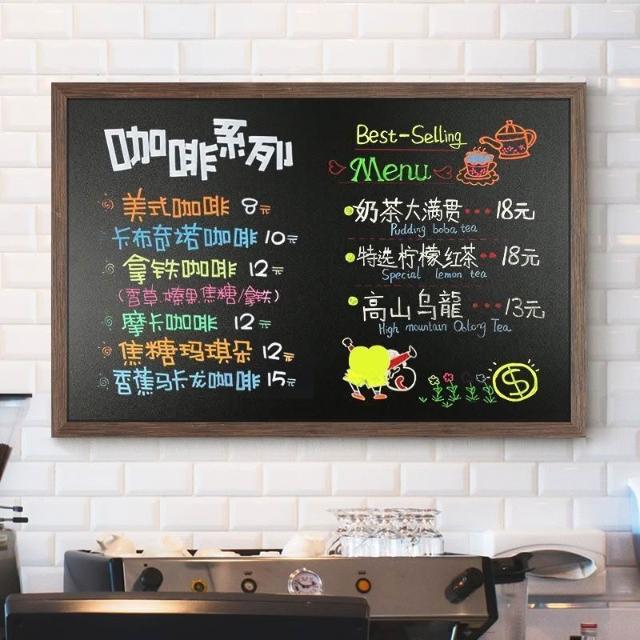 咖啡系列
美式咖啡 8元
卡布奇诺咖啡 10元
拿铁咖啡 12元
(香草.榛果.焦糖/拿铁)
摩卡咖啡 12元
焦糖玛琪朵 12元
香蕉马卡龙咖啡 15元
Best-Selling
Menu
奶茶大满贯 ••• 18元
Pudding boba tea
特选柠檬红茶 •• 18元
Special lemon tea
高山乌龍 ••• 13元
High mountain Oolong Tea
$